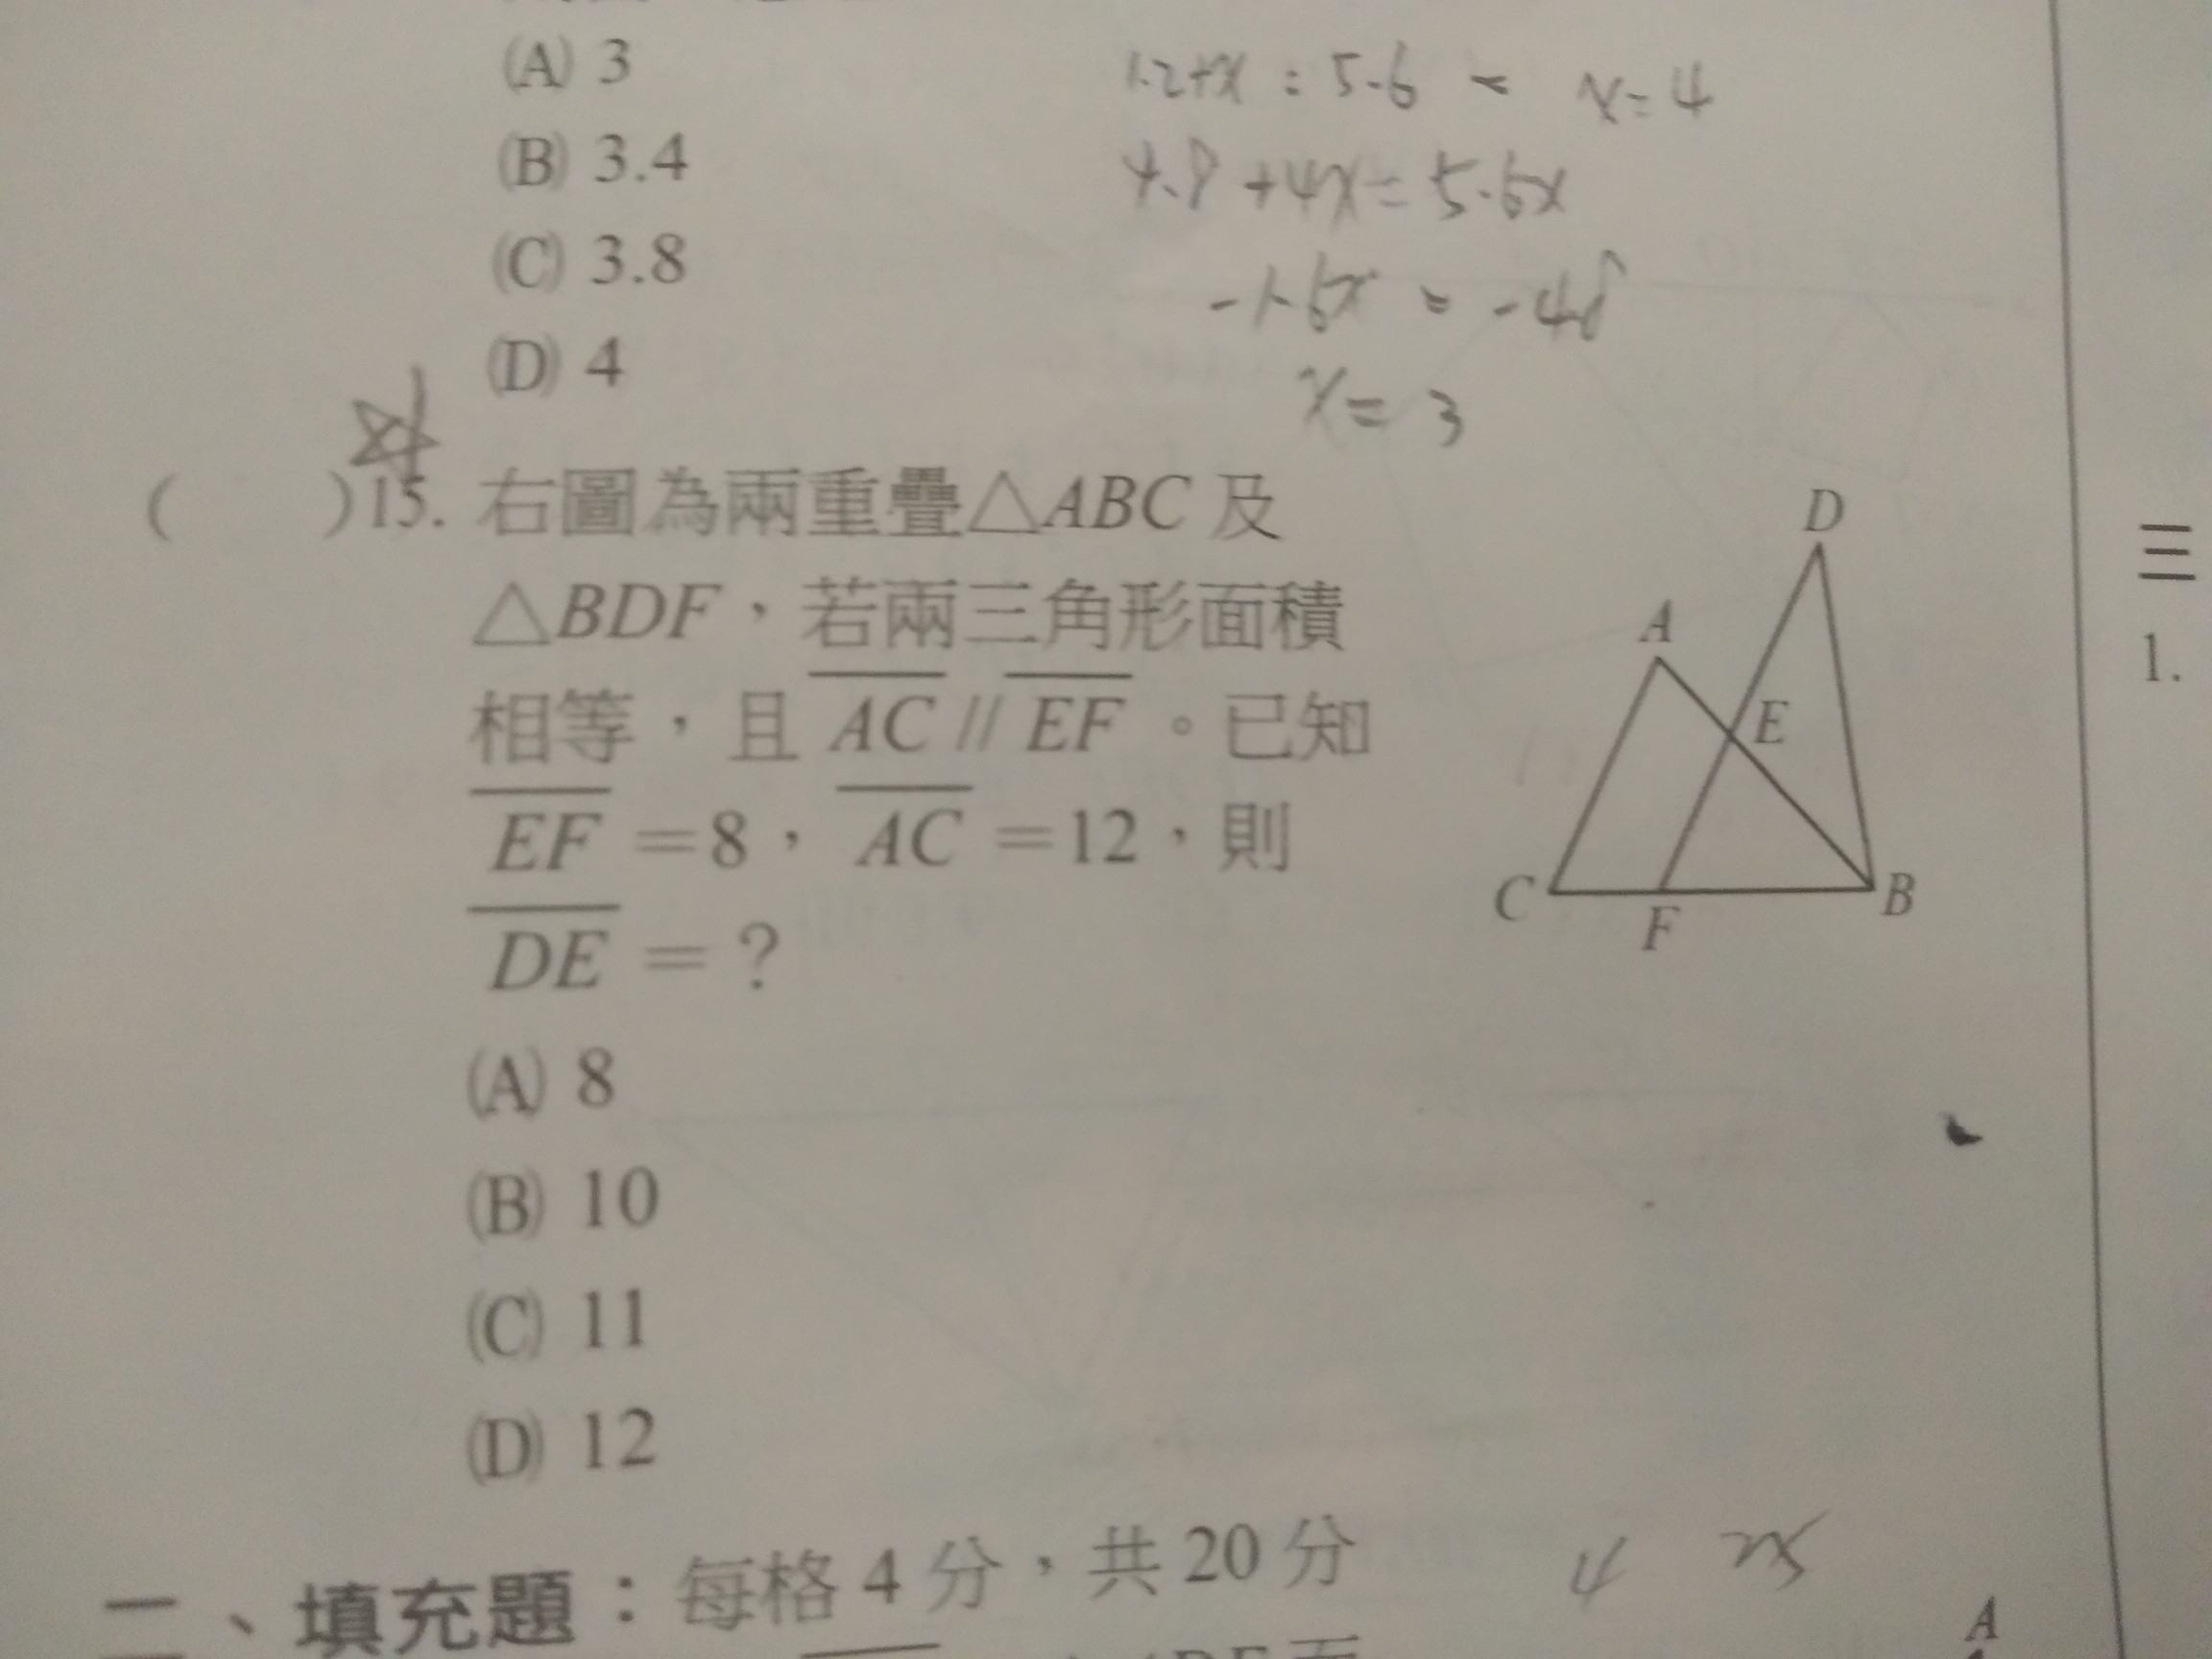 (A) 3
(B) 3.4
(C) 3.8
(D) 4
1.2+x : 5.6 = x = 4
4.8 + 4x = 5.6x
-1.6x = -4.8
x = 3
(　　)15. 右圖為兩重疊△ABC 及
△BDF，若兩三角形面積
相等，且 AC // EF 。已知
EF =8， AC =12，則
DE =？
(A) 8
(B) 10
(C) 11
(D) 12
D
A
E
C
F
B
二、填充題：每格 4 分，共 20 分
4
A
三
1.